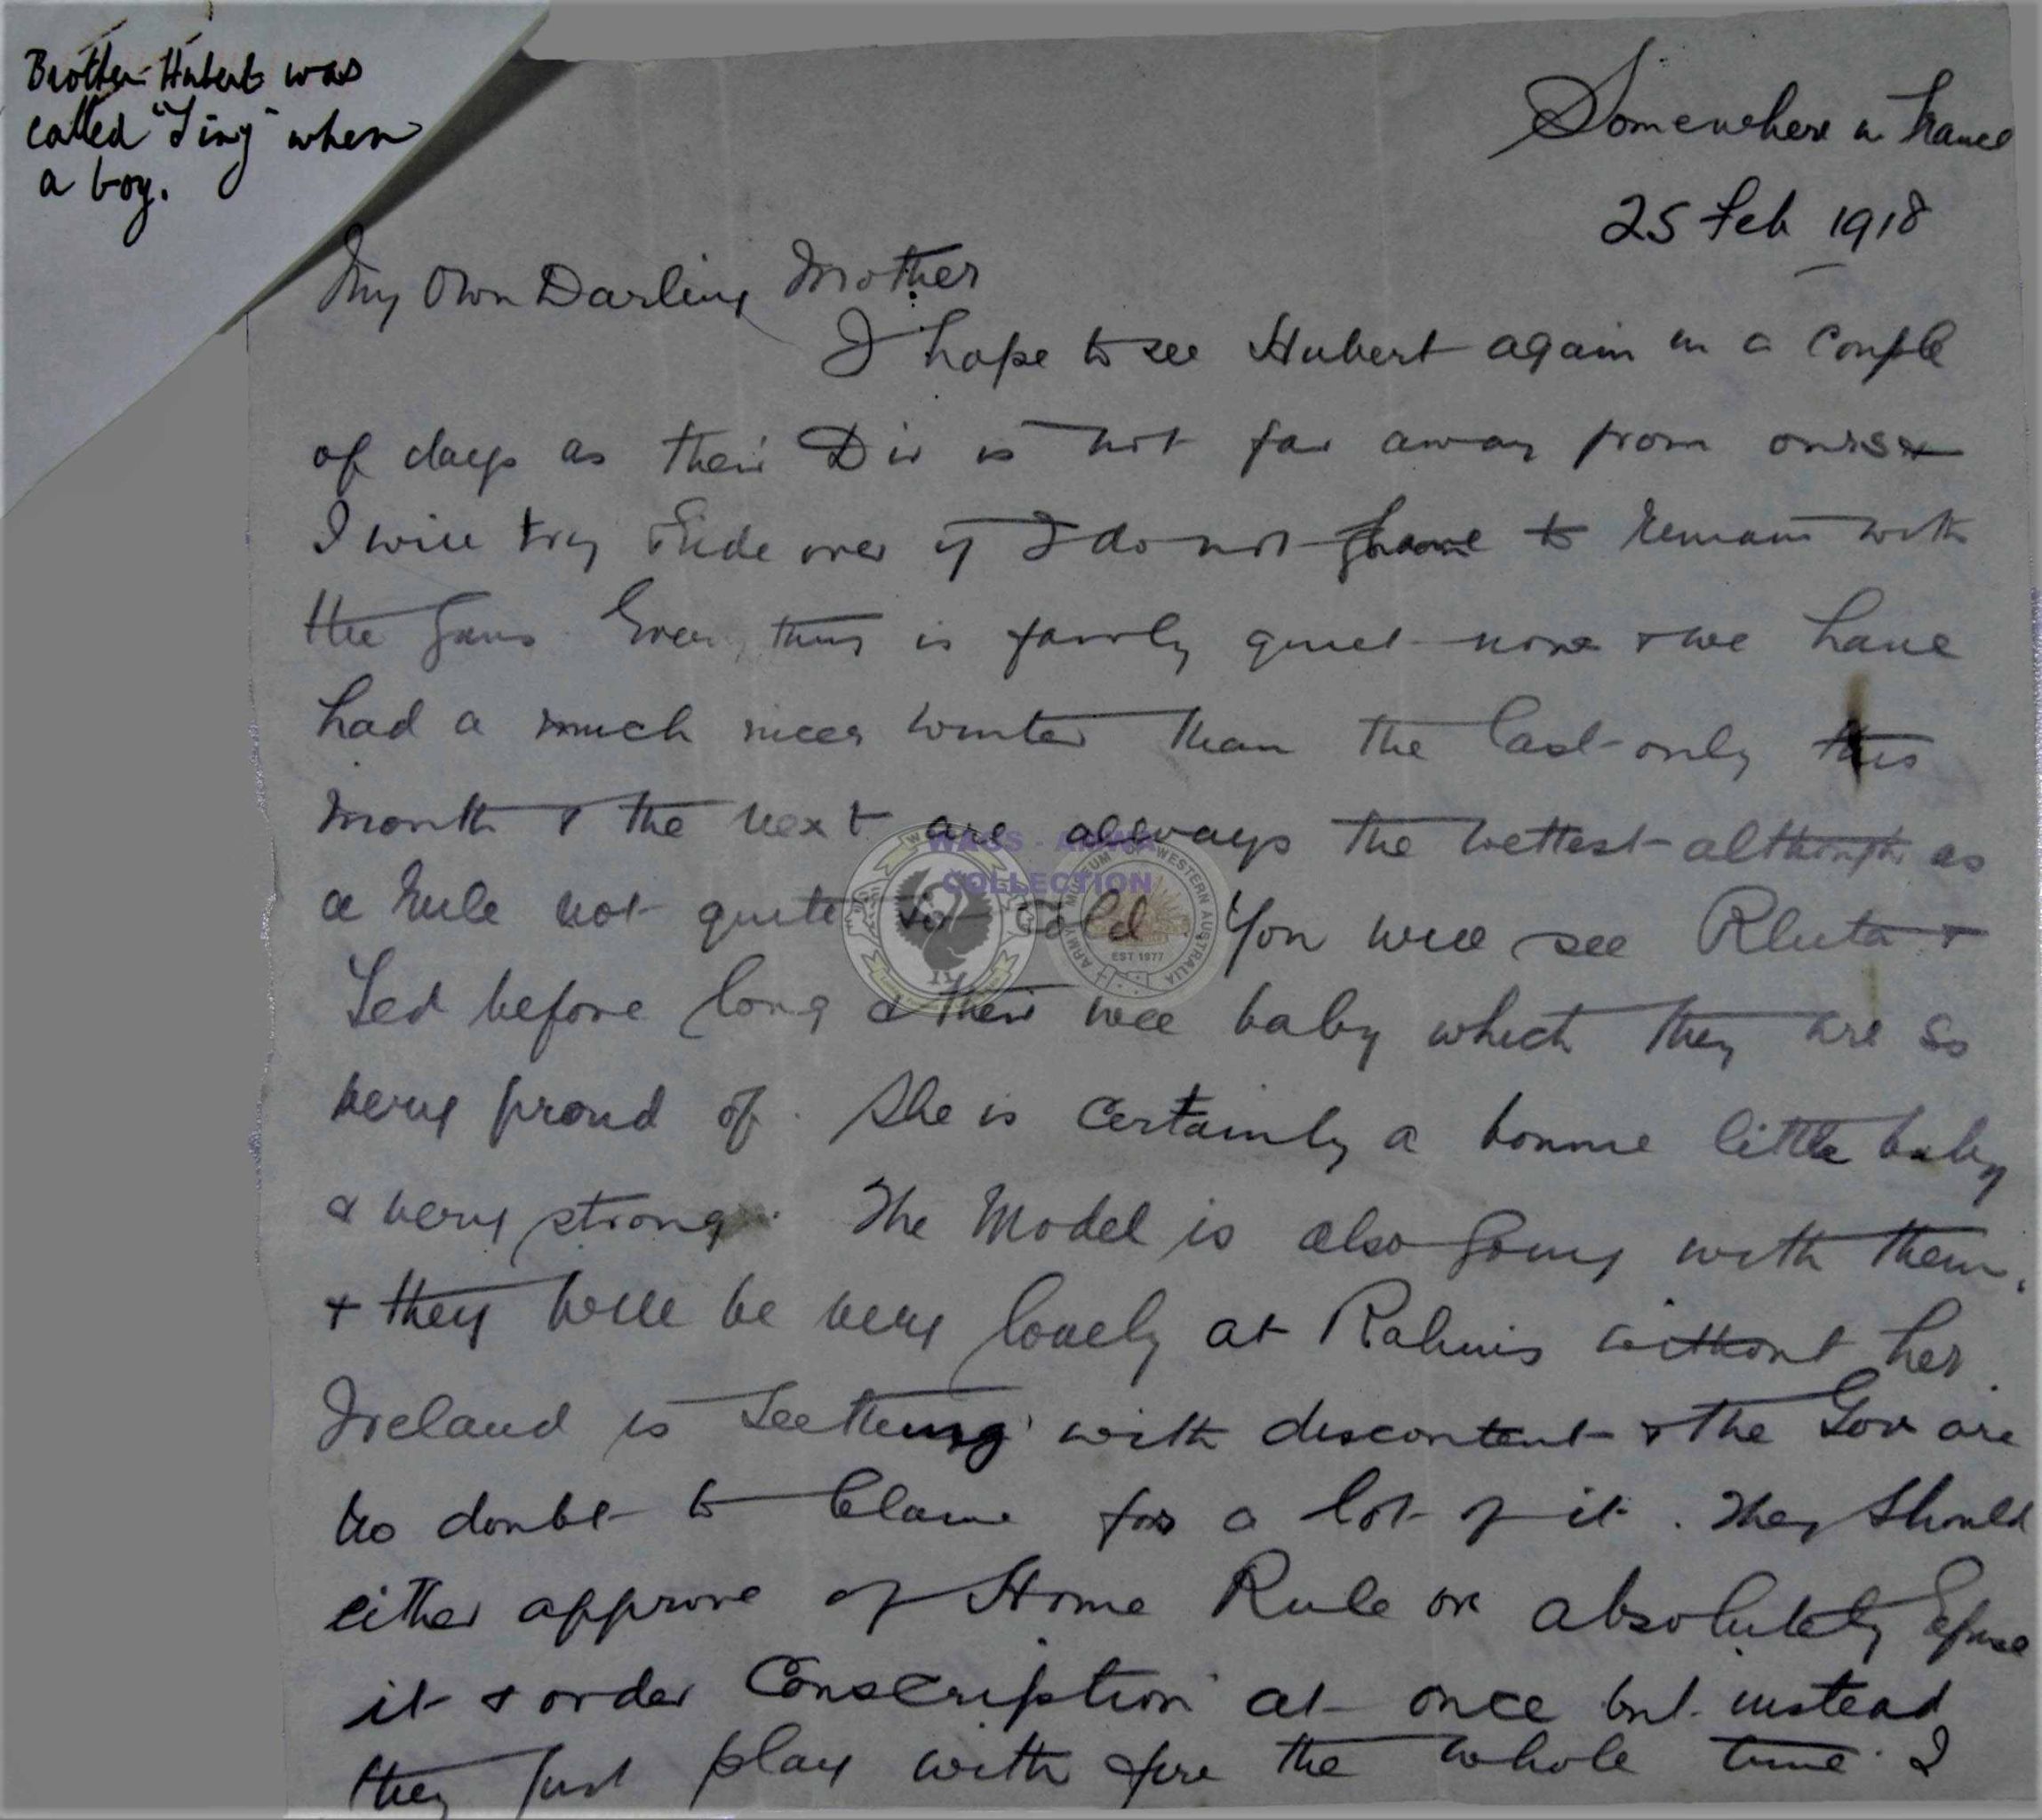 Brother Hubert was
called "Tiny" when
a boy.
Somewhere in France
25 Feb 1918
My Own Darling Mother
I hope to see Hubert again in a couple
of days as their Div is not far away from ours &
I will try & ride over if I do not have to remain with
the Guns Every thing is fairly quiet now & we have
had a much nicer winter than the last only this
month & the next are allways the wettest although as
a rule not quite so cold You will see Rheta &
Ted before long & their wee baby which they are so
very proud of. She is certainly a bonnie little baby
& very strong. The Model is also going with them.
& they will be very lonely at Rahinis without her.
Ireland is seething with discontent & the Gov are
no doubt to blame for a lot of it. They should
either approve of Home Rule or absolutely refuse
it & order Conscription at once but instead
they just play with fire the whole time. I
WAGS - AMWA
COLLECTION
ARMY MUSEUM OF WESTERN AUSTRALIA
EST 1977